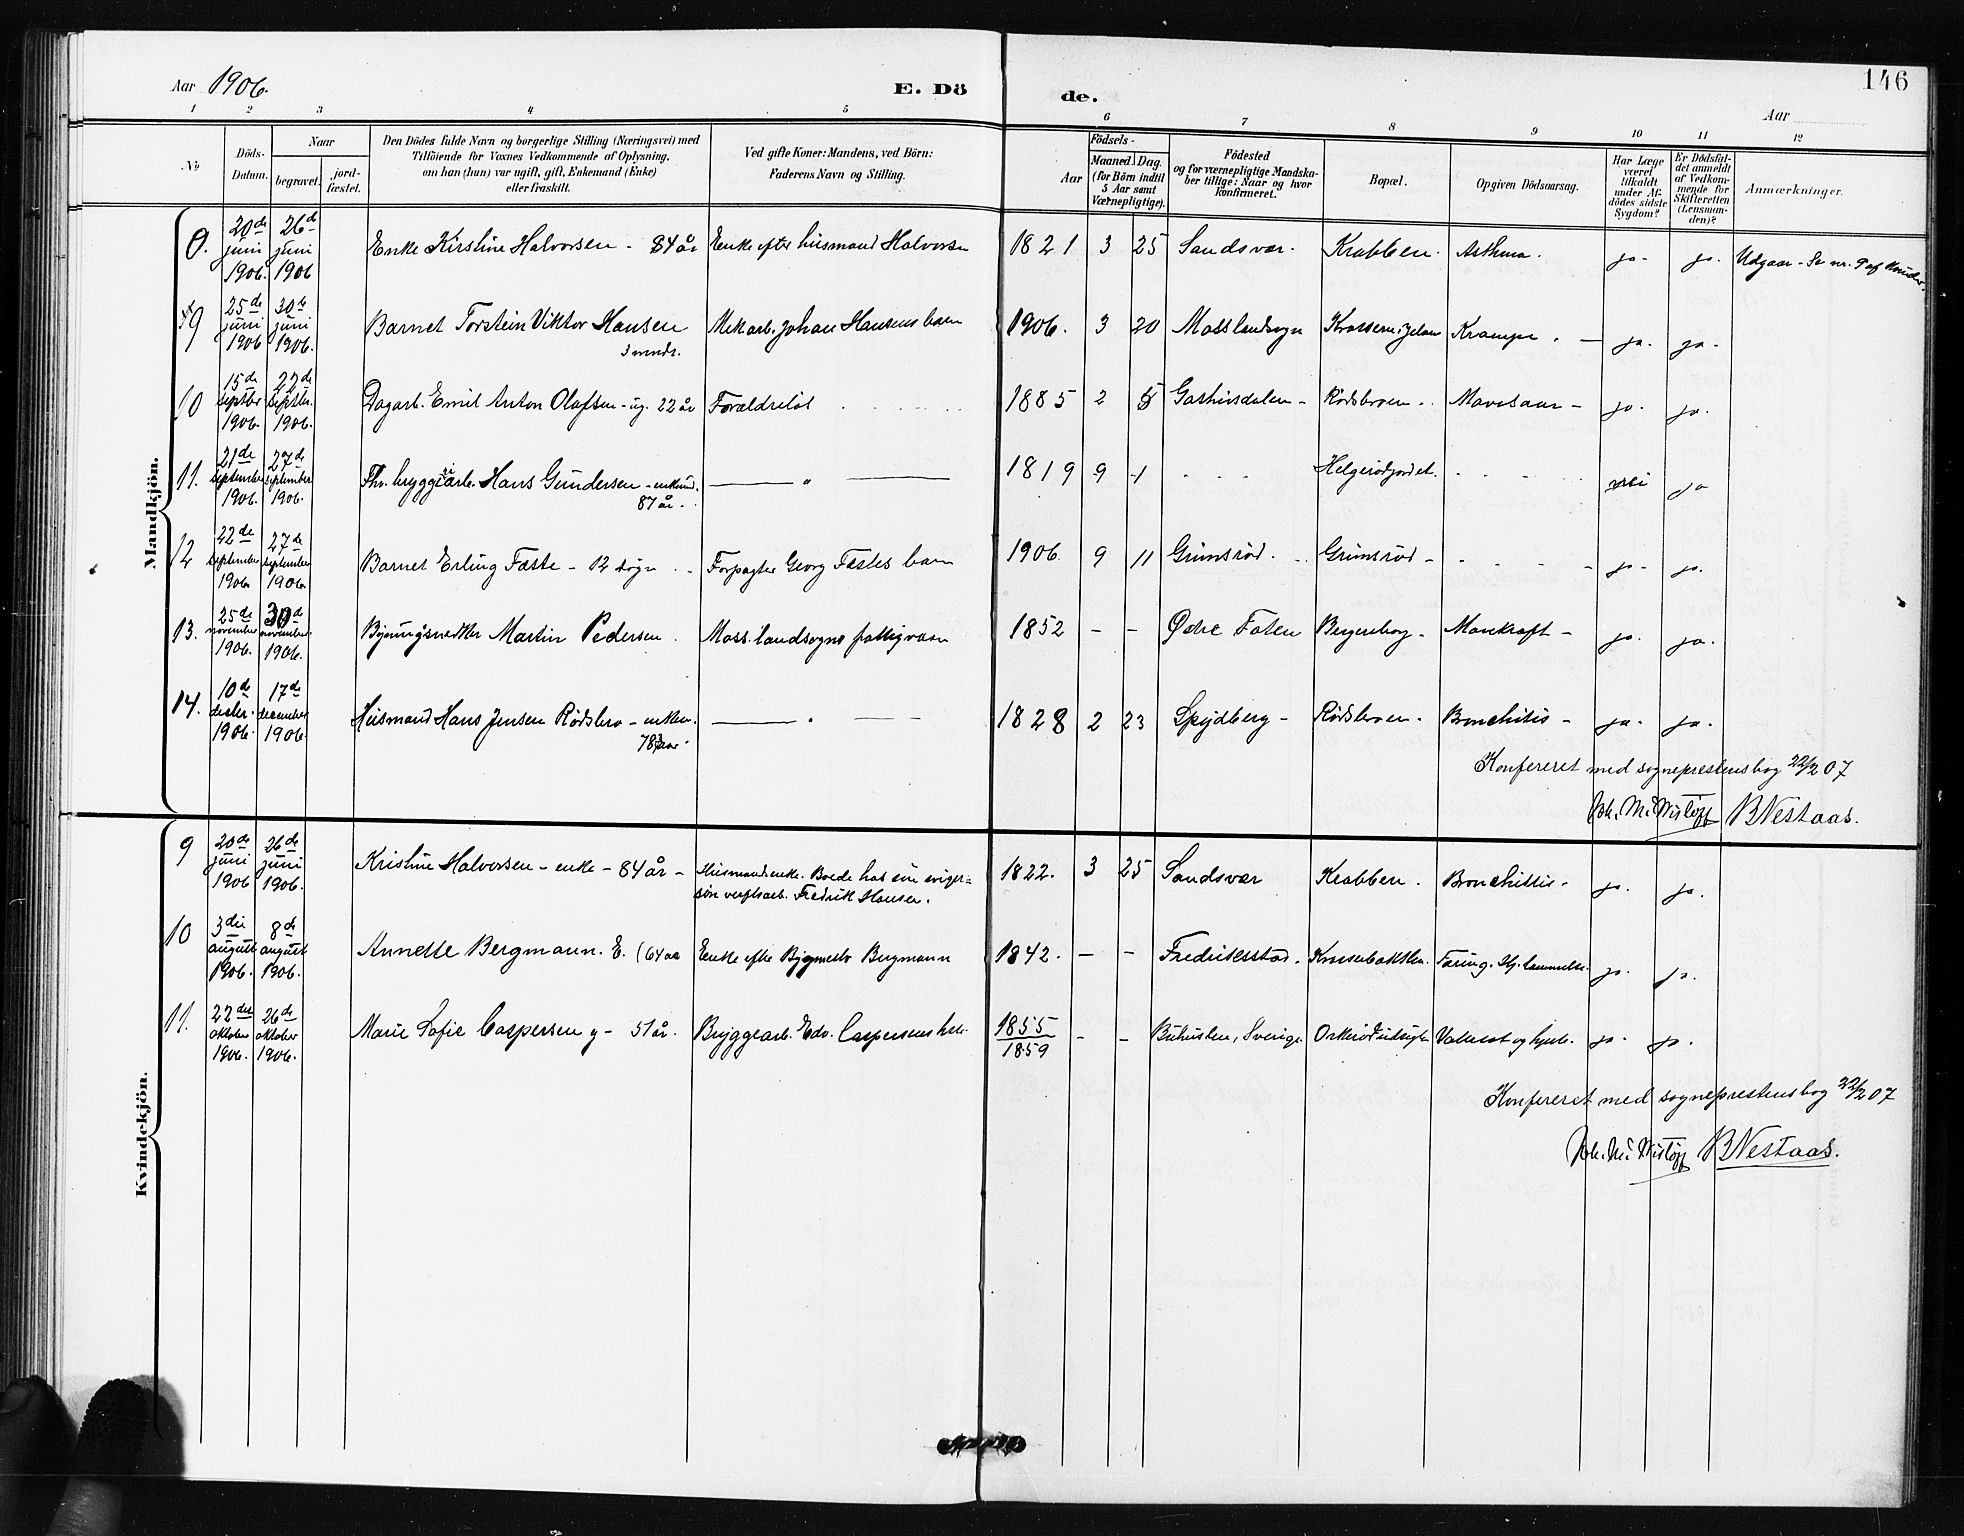 146
Aar 1906.
E. Dö
de.
Aar
1 2 3 4 5 6 7 8 9 10 11 12
No
Döds-Datum.
Naar
begravet.
jord-fæstet.
Den Dödes fulde Navn og borgerlige Stilling (Næringsvei) med
Tilföiende for Voxnes Vedkommende af Oplysning,
om han (hun) var ugift, gift, Enkemand (Enke)
eller fraskilt.
Ved gifte Koner: Mandens, ved Börn:
Faderens Navn og Stilling.
Födsels-
Aar
Maaned Dag.
(for Börn indtil
5 Aar samt
Værnepligtige).
Födested
og for værnepligtige Mandska-
ber tillige: Naar og hvor
konfirmeret.
Bopæl.
Opgiven Dödsaarsag.
Har Læge
været
tilkaldt
under Af-
dödes sidste
Sygdom?
Er Dödsfal-
det anmeldt
af Vedkom-
mende for
Skifteretten
(Lensman-
den)?
Anmærkninger.
Mandkjön.
0. 20de juni 1906. 26d juni 1906 Enke Kirstine Halvorsen - 84 år Enke efter husmand Halvorsen 1821 3 25 Sandsvær. Krabben. Asthma. ja. ja. Udgaar - Se nr. 9 af Kvinder.
9 25de juni 1906 30te juni 1906. Barnet Torstein Viktor Hansen 3 mndr. Mek arb. Johan Hansens barn 1906. 3 20 Moss landsogn Krampe. ja. ja.
10 15de septbr 1906. 22de septbr. 1906. Dagarb. Emil Anton Olafsen - ug. 22 år Forældreløs 1885 2 5 Rødsbroen. Mavesaar - ja. ja.
11. 21de september 1906. 27de september 1906. Fhv. bryggeriarb. Hans Gundersen - enkemd. 87 år. 1819 9 1 Helgerødjordet. nei ja
12 22de september 1906 27de september 1906. Barnet Erling Fæste - 12 døgn Forpagter Georg Fæstes barn 1906 9 11 Grimsrød. Grimsrød - ja. ja.
13. 25de november 1906. 30d november 1906. Bygningsnedker Martin Pedersen. Moss landsogns fattigvæsen 1852 - - Østre Toten Bergersborg - Mavekræft - ja. ja.
14. 10de decbr. 1906. 17de december 1906. Husmand Hans Jensen Rødsbro - enkem. 78 3/4 aar. 1828 2 23 Spydberg - Rødsbroen. Bronchitis - ja. ja.
Konfereret med sogneprestens bog 22/2 07
BNestaas.
Kvindekjön.
9 20de juni 1906 26de juni 1906. Kristine Halvorsen - enke - 84 år - Husmandsenke. Boede hos sin sviger-
søn verftsarb. Fredrik Hansen. 1822. 3 25 Sandsvær Krabben. Bronchittis - ja. ja.
10 3die august 1906. 8de august 1906. Annette Bergmann. E. (64 aa Enke efter Bygmestr Bergmann 1842. - - Fredriksstad. Krosserbakken. ja. ja.
11. 22de oktober 1906. 26de oktober 1906. Marie Sofie Caspersen g - 51 år. Bryggearb. Edv. Caspersens hst. 1855
1859 - - Båhuslen, Sverige. Orkerødudsigten Vattersot og hjerte. ja. ja.
Konfereret med sogneprestens bog 22/2 07
BNestaas.